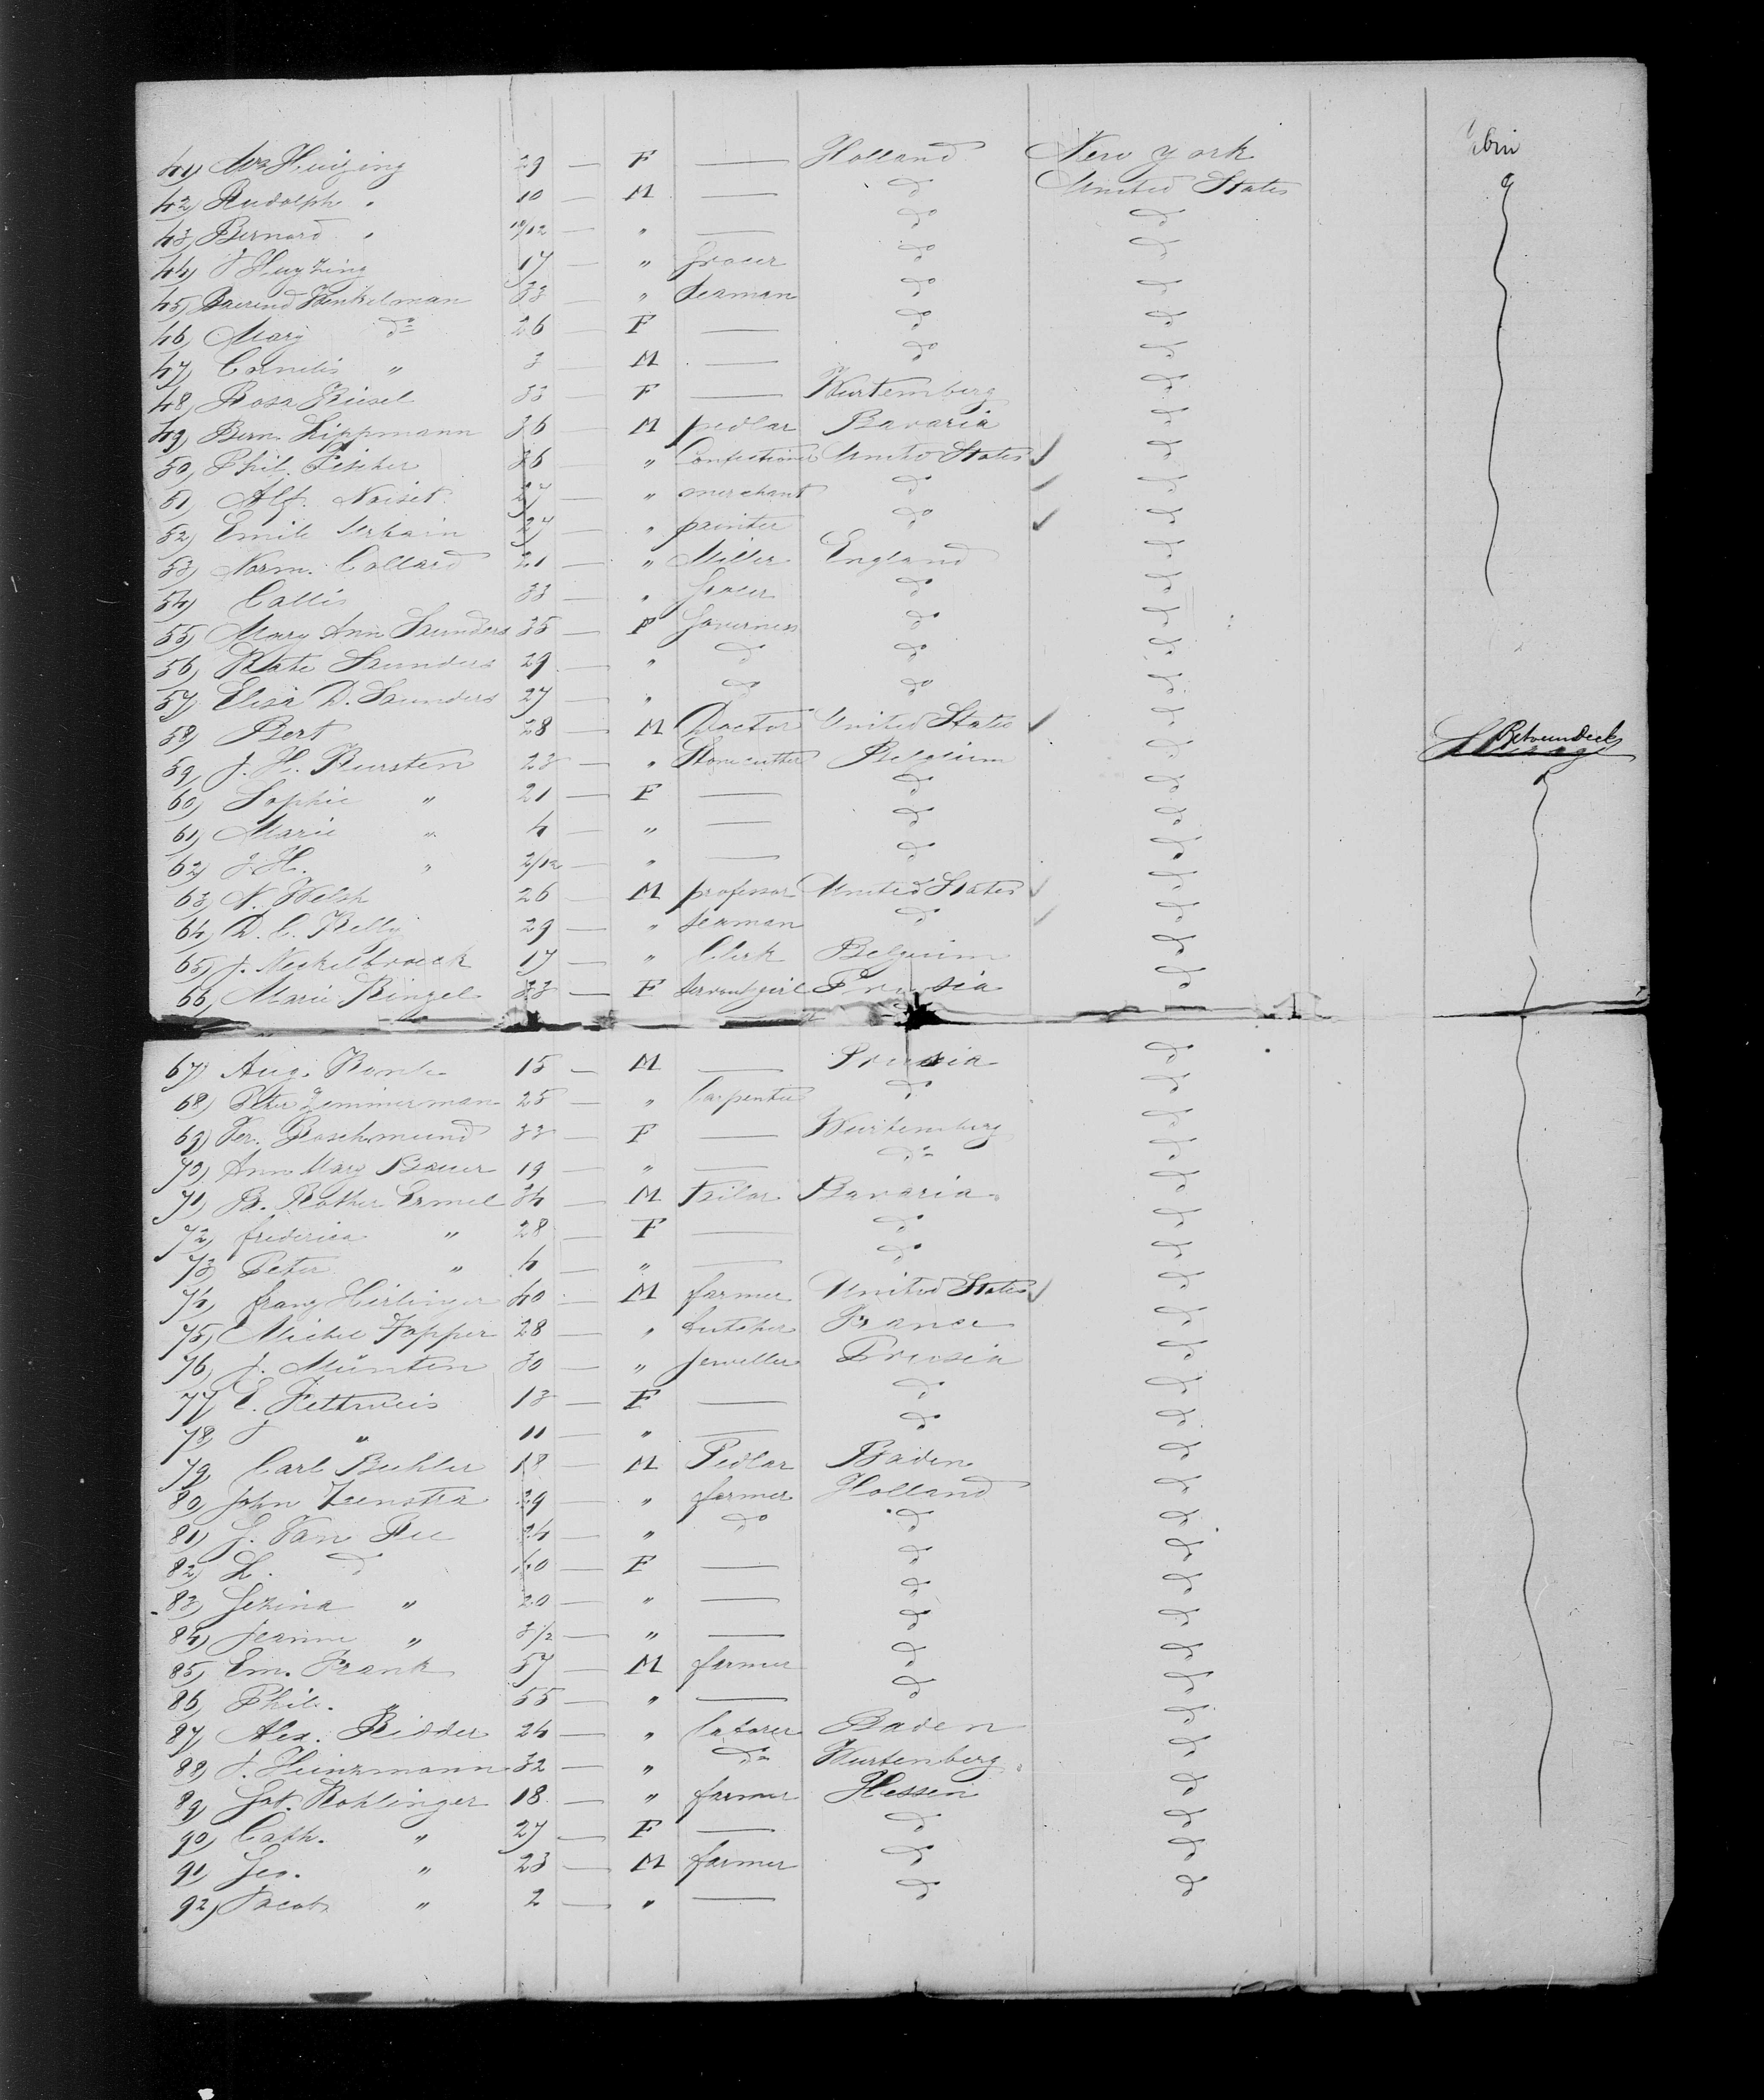 41) Mrs Huizing 29 — F — Holland New York Cabin
42) Rudolph " 10 — M — do United States
43) Bernard " 10/12 — " — do do
44) J Huyzing 17 — " Grocer do do
45) Baerend Henkelman 33 — " Seaman do do
46) Mary do 26 — F — do do
47) Cornelis " 3 — M — do do
48) Rosa Kiesel 33 — F — Wurtemberg do
49) Bern. Lippmann 36 — M pedlar Bavaria do
50) Phil. Fischer 36 — " Confectioner United States do
51) Alf. Noiset 27 — " merchant do do
52) Emile Urbain 27 — " painter do do
53) Norm. Collard 21 — " Miller England do
54) Callis 33 — " Grocer do do
55) Mary Ann Saunders 35 — F Governess do do
56) Kate Saunders 29 — " do do do
57) Elisa D. Saunders 27 — " do do do
58) Bert 28 — M Doctor United States do
59) J. H. Kursten 23 — " Stonecutter Belgium do
60) Sophie " 21 — F — do do
61) Marie " 4 — " — do do
62) J H. " 2/12 — " — do do
63) N. Welsh 26 — M professor United States do
64) D. C. Kelly 29 — " seaman do do
65) J. Neckelbroeck 17 — " Clerk Belgium do
66) Marie Ringel 33 — F Servantgirl Prussia do
67) Aug. 15 — M — Prussia do
68) Peter Zemmerman 25 — " Carpenter do do
69) Ver. Boschmund 33 — F — Wurtemberg do
70) Ann Mary Bauer 19 — " — do do
71) B. Rother Ermel 34 — M Tailor Bavaria do
72) frederica " 28 — F — do do
73) Peter " 4 — " — do do
74) franz Hirlinger 40 — M farmer United States do
75) Michel Japper 28 — " butcher France do
76) J. Münten 30 — " Jeweller Prussia do
77) E. Pettweis 13 — F — do do
78) J " 11 — " — do do
79) Carl Buhler 18 — M Pedlar Baden do
80) John Zeenstra 29 — " farmer Holland do
81) J. Van Pee 24 — " do do do
82) L. do 60 — F — do do
83) Gezina " 20 — " — do do
84) Jeanne " 3 1/2 — " — do do
85) Em. Frank 57 — M farmer do do
86) Phil. " 55 — " — do do
87) Alex. Ridder 24 — " laborer Baden do
88) J. Heinzmann 32 — " do Wurtemberg do
89) Jos. Rohlinger 18 — " farmer Hessen do
90) Cath. " 27 — F — do do
91) Geo. " 23 — M farmer do do
92) Jacob " 2 — " — do do